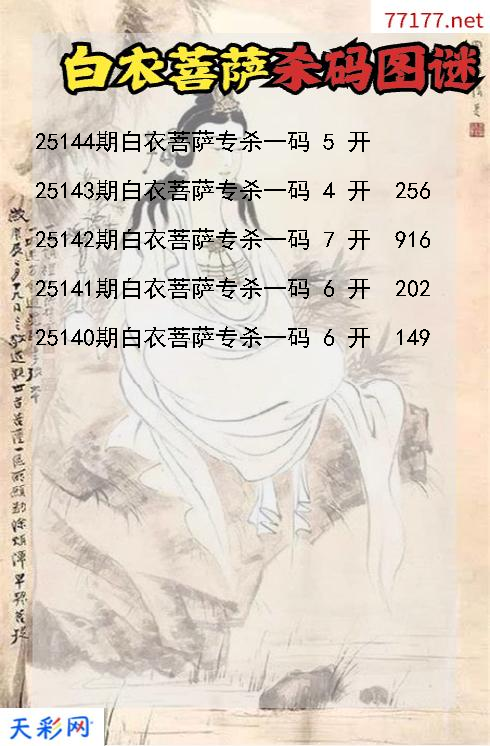 77177.net
白衣菩萨杀码图谜
25144期白衣菩萨专杀一码 5 开
25143期白衣菩萨专杀一码 4 开 256
25142期白衣菩萨专杀一码 7 开 916
25141期白衣菩萨专杀一码 6 开 202
25140期白衣菩萨专杀一码 6 开 149
天彩网